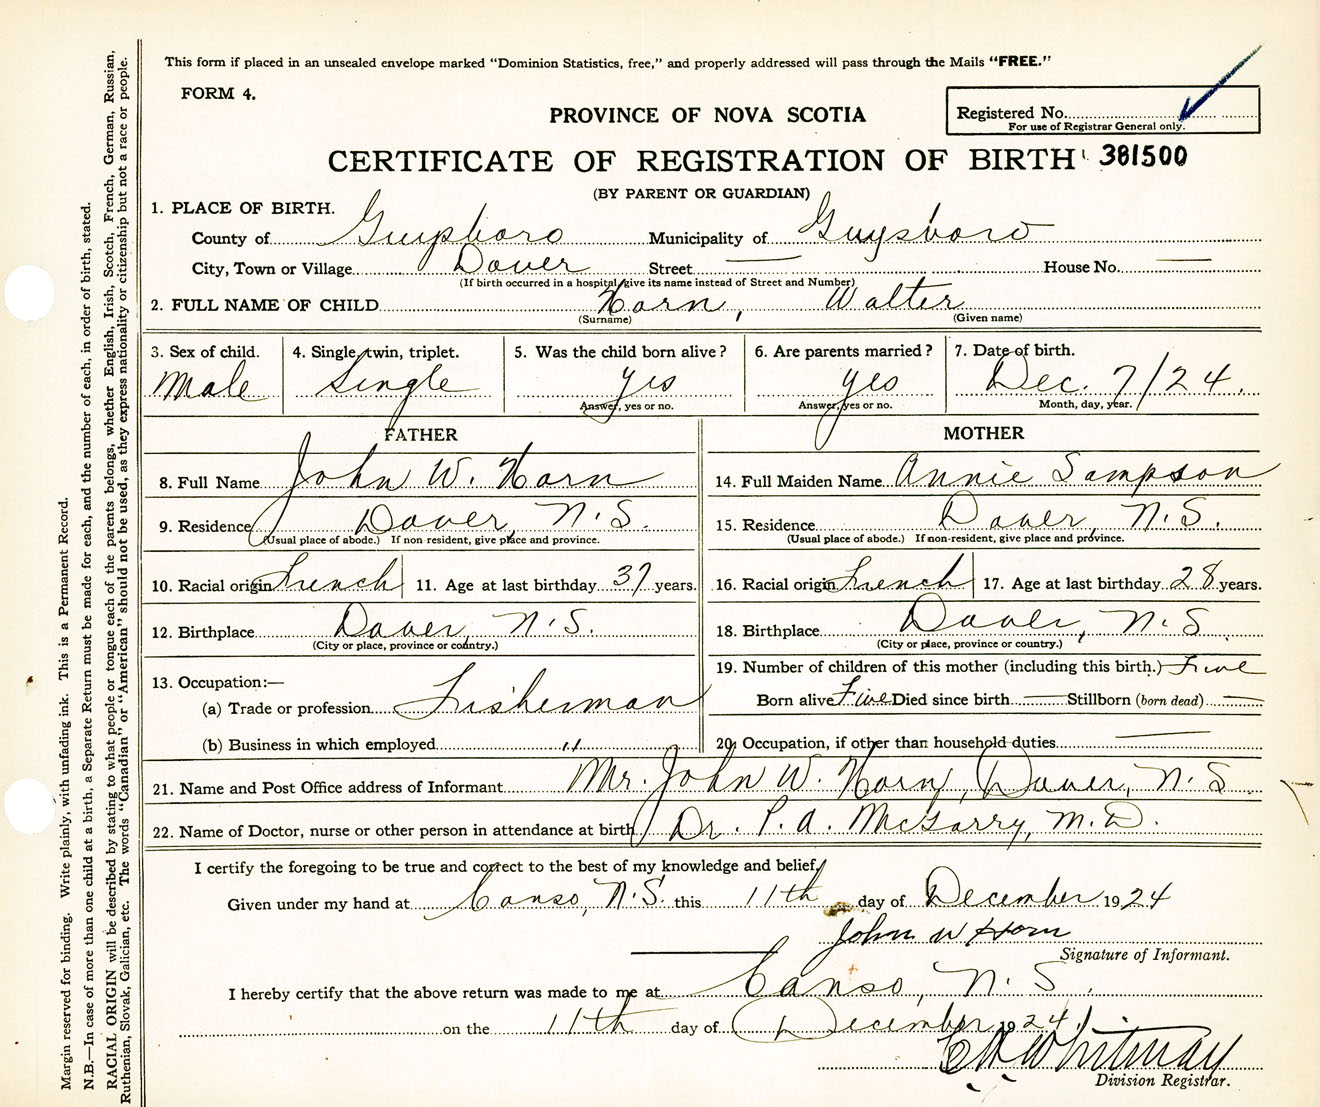 This form if placed in an unsealed envelope marked "Dominion Statistics, free," and properly addressed will pass through the Mails "FREE."
FORM 4.
PROVINCE OF NOVA SCOTIA
Registered No.
For use of Registrar General only.
CERTIFICATE OF REGISTRATION OF BIRTH 381500
(BY PARENT OR GUARDIAN)
1. PLACE OF BIRTH.
County of Guysboro Municipality of Guysboro
City, Town or Village Dover Street — House No. —
(If birth occurred in a hospital, give its name instead of Street and Number)
2. FULL NAME OF CHILD Horn, Walter
(Surname) (Given name)
3. Sex of child. 4. Single, twin, triplet. 5. Was the child born alive? 6. Are parents married? 7. Date of birth.
Male Single yes yes Dec. 7/24.
Answer, yes or no. Answer, yes or no. Month, day, year.
FATHER MOTHER
8. Full Name John W. Horn 14. Full Maiden Name Annie Sampson
9. Residence Dover, N.S. 15. Residence Dover, N.S.
(Usual place of abode.) If non-resident, give place and province. (Usual place of abode.) If non-resident, give place and province.
10. Racial origin French 11. Age at last birthday 37 years. 16. Racial origin French 17. Age at last birthday 28 years.
12. Birthplace Dover, N.S. 18. Birthplace Dover, N.S.
(City or place, province or country.) (City or place, province or country.)
13. Occupation:— 19. Number of children of this mother (including this birth.) Five
(a) Trade or profession Fisherman Born alive Five Died since birth — Stillborn (born dead) —
(b) Business in which employed " 20. Occupation, if other than household duties —
21. Name and Post Office address of Informant Mr. John W. Horn, Dover, N.S.
22. Name of Doctor, nurse or other person in attendance at birth Dr. P. A. McGarry, M.D.
I certify the foregoing to be true and correct to the best of my knowledge and belief,
Given under my hand at Canso, N.S. this 11th day of December 1924
John W Horn
Signature of Informant.
I hereby certify that the above return was made to me at Canso, N.S.
on the 11th day of December 1924
Whitman
Division Registrar.
Margin reserved for binding. Write plainly, with unfading ink. This is a Permanent Record.
N.B.—In case of more than one child at a birth, a Separate Return must be made for each, and the number of each, in order of birth, stated.
RACIAL ORIGIN will be described by stating to what people or tongue each of the parents belongs, whether English, Irish, Scotch, French, German, Russian,
Ruthenian, Slovak, Galician, etc. The words "Canadian" or "American" should not be used, as they express nationality or citizenship but not a race or people.